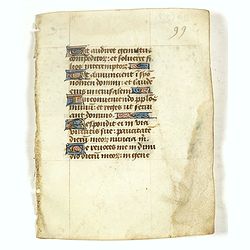 99
Ut audiret gemitus
compeditor: et solveret fi
lios interemptor
Ut annuncient i sy
nomen domini: et laude
eius in iherusalem
In conveniendo pplos
in unu: et reges ut servi
ant domino
Respondit ei in via
virtutis sue: paucitate
dierum meor nuncia m
Ne revoces me in dimi
dio dierum meor: in gene